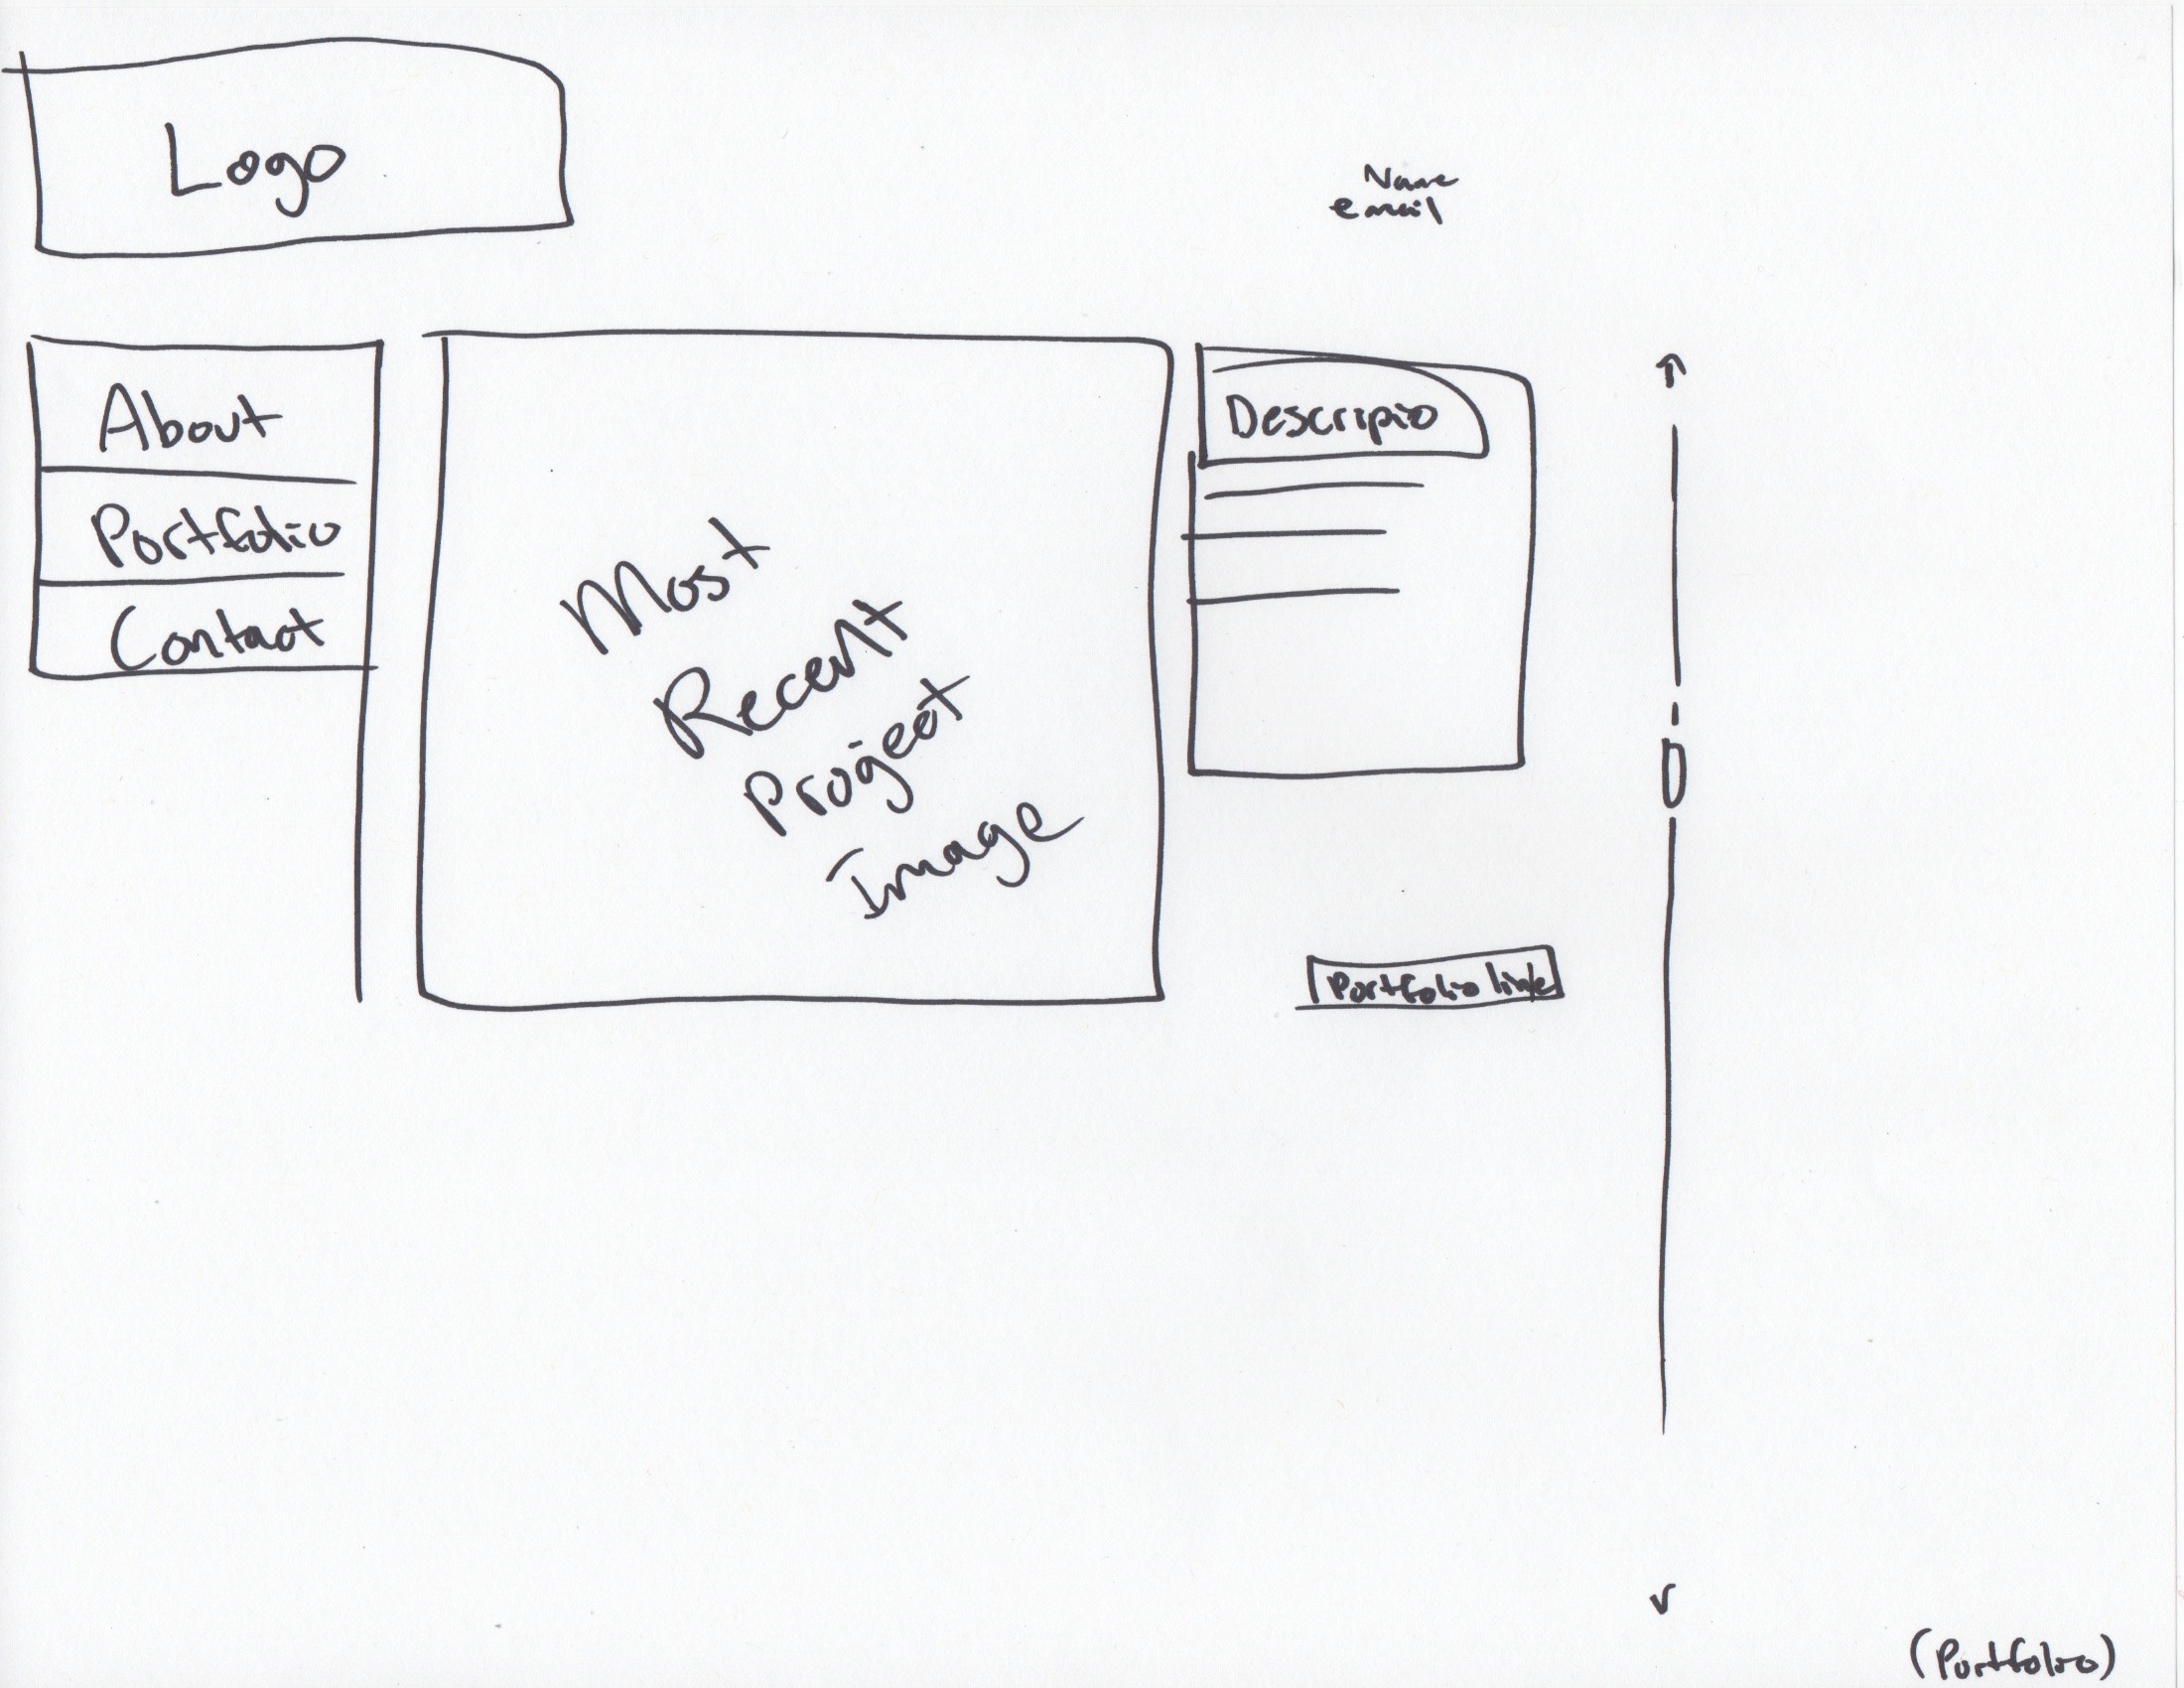 Logo
Name
email
About
Portfolio
Contact
Most
Recent
Project
Image
Descripio
Portfolio link
(Portfolio)